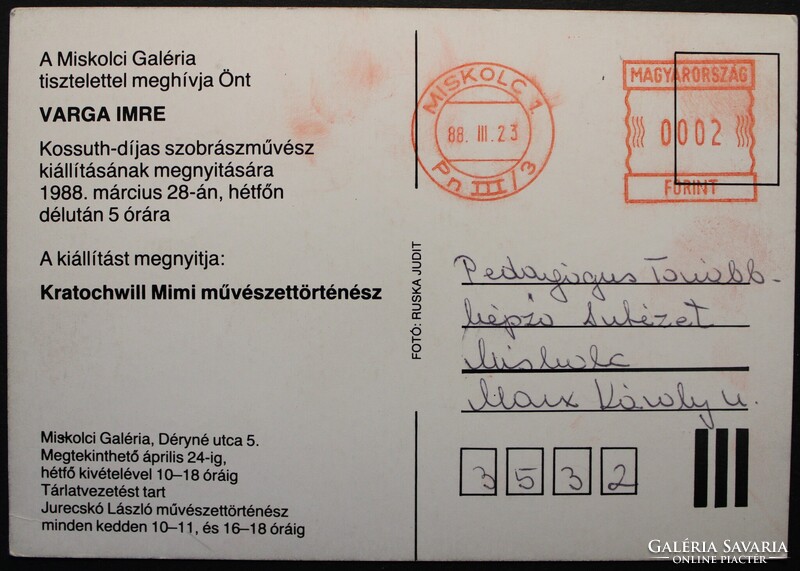 A Miskolci Galéria
tisztelettel meghívja Önt
VARGA IMRE
Kossuth-díjas szobrászművész
kiállításának megnyitására
1988. március 28-án, hétfőn
délután 5 órára
A kiállítást megnyitja:
Kratochwill Mimi művészettörténész
Miskolci Galéria, Déryné utca 5.
Megtekinthető április 24-ig,
hétfő kivételével 10–18 óráig
Tárlatvezetést tart
Jurecskó László művészettörténész
minden kedden 10–11, és 16–18 óráig
FOTÓ: RUSKA JUDIT
MISKOLC 1.
88. III. 23
Pn III/3
MAGYARORSZÁG
0002
FORINT
Pedagógus Tovább-
képző Intézet
Miskolc
Marx Károly u.
3532
GALÉRIA SAVARIA
ONLINE PIACTÉR